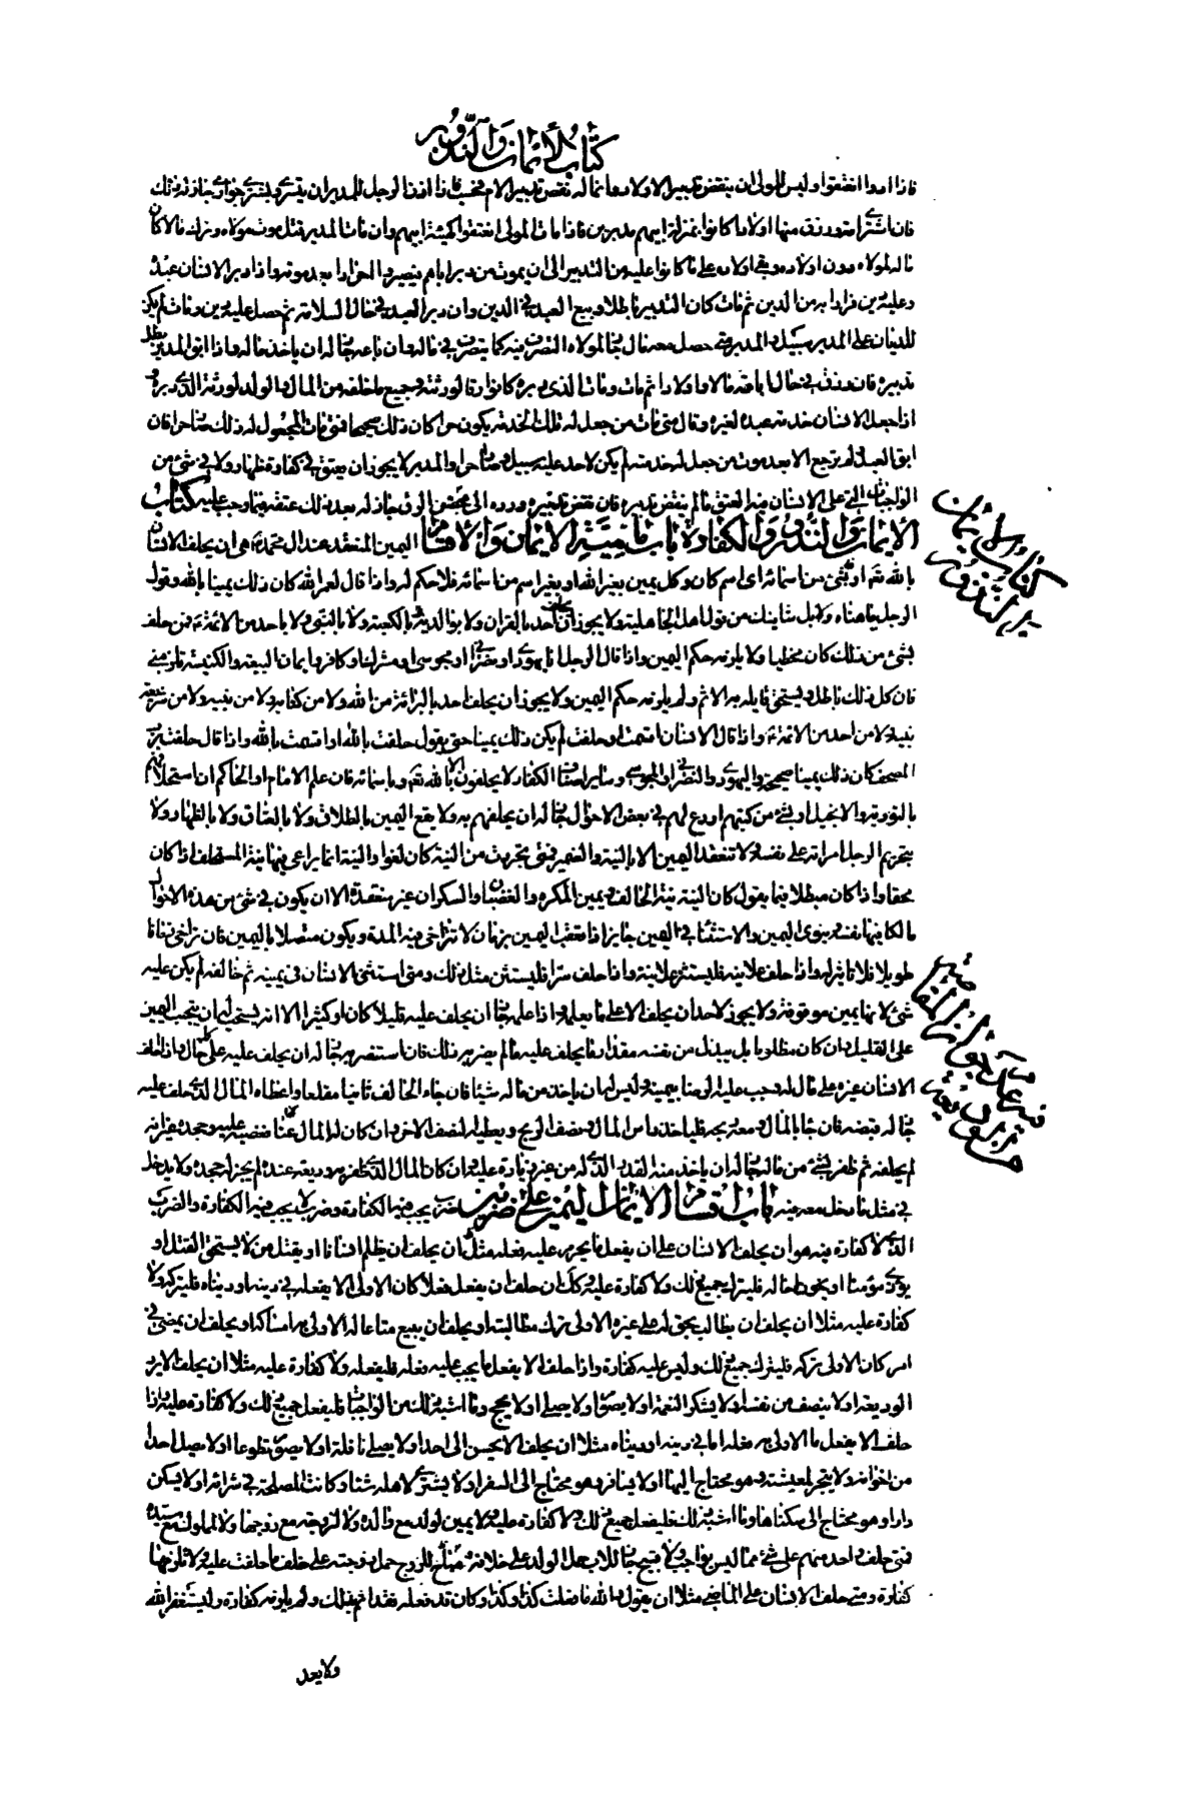 كتاب الأيمان والنذور
فاذا ادوا انعتقوا وليس للمولى ان ينقض تدبير الاولاد وانما له نقض تدبير الام فحسب فاذا اذن الرجل للمدبر ان يتسرى ويشترى جوارى جاز ذلك
فان اشترى امة ورزق منها اولادا كانوا بمنزلة ابيهم مدبرين فاذا مات المولى انعتقوا كهيئة ابيهم وان مات المدبر قبل موت مولاه وترك مالا كان
ماله لمولاه دون اولاده وبقى اولاده على ما كانوا عليه من التدبير الى ان يموت من دبر اباهم فيصيروا احرارا بعد موته واذا دبر الانسان عبده
وعليه دين فرارا به من الدين ثم مات كان التدبير باطلا وبيع العبد فى الدين وان دبر العبد فى حال السلامة ثم حصل عليه دين ومات لم يكن
للديان على المدبر سبيل والمدبر متى حصل معه مال جاز لمولاه التصرف فيه كما يتصرف فى ماله وان باعه جاز له ان ياخذ ماله واذا ابق المدبر بطل
تدبيره فان رزق فى حال اباقه مالا واولادا ثم مات ومات الذى دبره كانوا رقا لورثته وجميع ما خلفه من المال والولد لورثة الذى دبره و
اذا جعل الانسان خدمة عبده لغيره وقال متى مات من جعل له تلك الخدمة يكون حرا كان ذلك صحيحا فمتى مات المجعول له ذلك صار حرا فان
ابق العبد ولم يرجع الا بعد موت من جعل له خدمته لم يكن لاحد عليه سبيل وصار حرا والمدبر لا يجوز ان يعتق فى كفارة ظهار ولا فى شئ من
الواجبات التى على الانسان فيه العتق ما لم ينقض تدبيره فان نقض تدبيره ورده الى محض الرق جاز له بعد ذلك عتقه فيما وجب عليه كتاب
الأيمان والنذور والكفارة باب ماهية الايمان والأقسام اليمين المنعقدة عند ال محمد هى ان يحلف الانسان
بالله تعالى او بشئ من اسمائه اى اسم كان وكل يمين بغير الله او بغير اسم من اسمائه فلا حكم له واذا قال لعمر الله كان ذلك يمينا بالله وقول
الرجل يا هناه ولا بل شانئك من قول اهل الجاهلية ولا يجوز ان يحلف احد بالقران ولا بوالديه ولا بالكعبة ولا بالنبى ولا باحد من الائمة فمن حلف
بشئ من ذلك كان مخطيا ولا يلزمه حكم اليمين واذا قال الرجل انا يهودى او نصرانى او مجوسى او مشرك او كافر وايمان البيعة والكنيسة تلزمنى
فان كل ذلك باطل ويستحق قايله به الاثم ولم يلزمه حكم اليمين ولا يجوز ان يحلف احد بالبرائة من الله ولا من كتابه ولا من نبيه ولا من شريعة
نبيه ولا من احد من الائمة واذا قال الانسان اقسمت او حلفت لم يكن ذلك يمينا حتى يقول حلفت بالله او اقسمت بالله واذا قال حلفت برب
المصحف كان ذلك يمينا صحيحة واليهودى والنصرانى والمجوسى وساير اصناف الكفار لا يحلفون الا بالله تعالى وباسمائه فان علم الامام او الحاكم ان استحلافهم
بالتورية والانجيل او بشئ من كتبهم اردع لهم فى بعض الاحوال جاز له ان يحلفهم به ولا يقع اليمين بالطلاق ولا بالعتاق ولا بالظهار ولا
بتحريم الرجل امراته على نفسه ولا تنعقد اليمين الا بالنية والضمير فمتى تجردت من النية كان لغوا والنية انما يراعى فيها نية المستحلف اذا كان
محقا واذا كان مبطلا فيما يقول كان النية نية الحالف ويمين المكره والغضبان والسكران غير منعقدة الا ان يكون فى شئ من هذه الاحوال
مالكا فيها نفسه وينوى اليمين والاستثنا فى اليمين جايز اذا تعقب اليمين بزمان لا تتراخى فيه المدة ويكون متصلا باليمين فان تراخى زمانا
طويلا فلا تاثير له واذا حلف علانية فليستثن علانية واذا حلف سرا فليستثن مثل ذلك ومتى استثنى الانسان فى يمينه ثم خالفه لم يكن عليه
شئ لانها يمين موقوفة ولا يجوز لاحد ان يحلف الا على ما يعلمه واذا علمه جاز ان يحلف عليه قليلا كان او كثيرا الا انه يستحب له ان يتجنب اليمين
على القليل وان كان مظلوما بل يبذل من نفسه مقدار ما يحلف عليه ما لم يضر به ذلك فان استضر به جاز له ان يحلف عليه على كل حال واذا حلف
الانسان غيره على مال له وجب عليه الرضا بيمينه وليس له ان ياخذ من ماله شيئا فان جاء الحالف ثانيا مقلعا واعطاه المال الذى حلف عليه
جاز له قبضه فان جاء بالمال ومعه ربحه فلياخذ راس المال ونصف الربح ويعطيه النصف الاخر وان كان له المال عنده فغصبه عليه وجحده غير انه
لم يحلفه ثم ظفر بشئ من ماله جاز له ان ياخذ منه القدر الذى له من غير زيادة عليه وان كان المال الذى ظفر به وديعة عنده لم يجز له جحده ولا يدخل
فى مثل ما دخل معه فيه باب اقسام الايمان اليمين على ضربين ضرب يجب فيه الكفارة وضرب لا يجب فيه الكفارة والضرب
الذى لا كفارة فيه هو ان يحلف الانسان على ان يفعل ما يحرم عليه فعله مثل ان يحلف ان يظلم انسانا او يقتل من لا يستحق القتل او
يؤذى مؤمنا او يخوط ماله فليترك جميع ذلك ولا كفارة عليه وكك ان حلف ان يفعل فعلا كان الاولى الا يفعله فى دينه او دنياه فليتركه ولا
كفارة عليه مثلا ان يحلف ان يطالب بحق له على غيره الاولى ترك مطالبته او يحلف ان يبيع متاعا له الاولى به امساكه او يحلف ان يمضى فى
امر كان الاولى تركه فليترك جميع ذلك وليس عليه كفارة واذا حلف الا يفعل ما يجب عليه فعله فليفعله ولا كفارة عليه مثلا ان يحلف الا يرد
الوديعة او لا ينصف من نفسه او لا يشكر النعمة او لا يصوم او لا يصلى او لا يحج وما اشبه ذلك من الواجبات فليفعل جميع ذلك ولا كفارة عليه واذا
حلف الا يفعل ما الاولى به فعله اما فى دينه او دنياه مثلا ان يحلف الا يحسن الى احد او لا يصلى نافلة او لا يصوم تطوعا او لا يصل احدا
من اخوانه ولا يتجر لمعيشته وهو محتاج اليها او لا يسافر وهو محتاج الى السفر او لا يشترى لاهله شيئا وكانت المصلحة فى شرائه او لا يسكن
دارا وهو محتاج الى سكناها وما اشبه ذلك فليفعل جميع ذلك ولا كفارة عليه ولا يمين لولد مع والده ولا للزوجة مع زوجها ولا للمملوك مع سيده
فمتى حلف واحد منهم على شئ مما ليس بواجب ولا قبيح جاز للاب حمل الولد على خلافه وجاز للزوج حمل زوجته على خلف ما حلفت عليه ولا تلزمها
كفارة ومتى حلف الانسان على الماضى مثلا ان يقول والله ما فعلت كذا وكذا وكان قد فعله فقد اثم بذلك ولم يلزمه كفارة وليستغفر الله
ولا يعد
كتاب الايمان والنذور